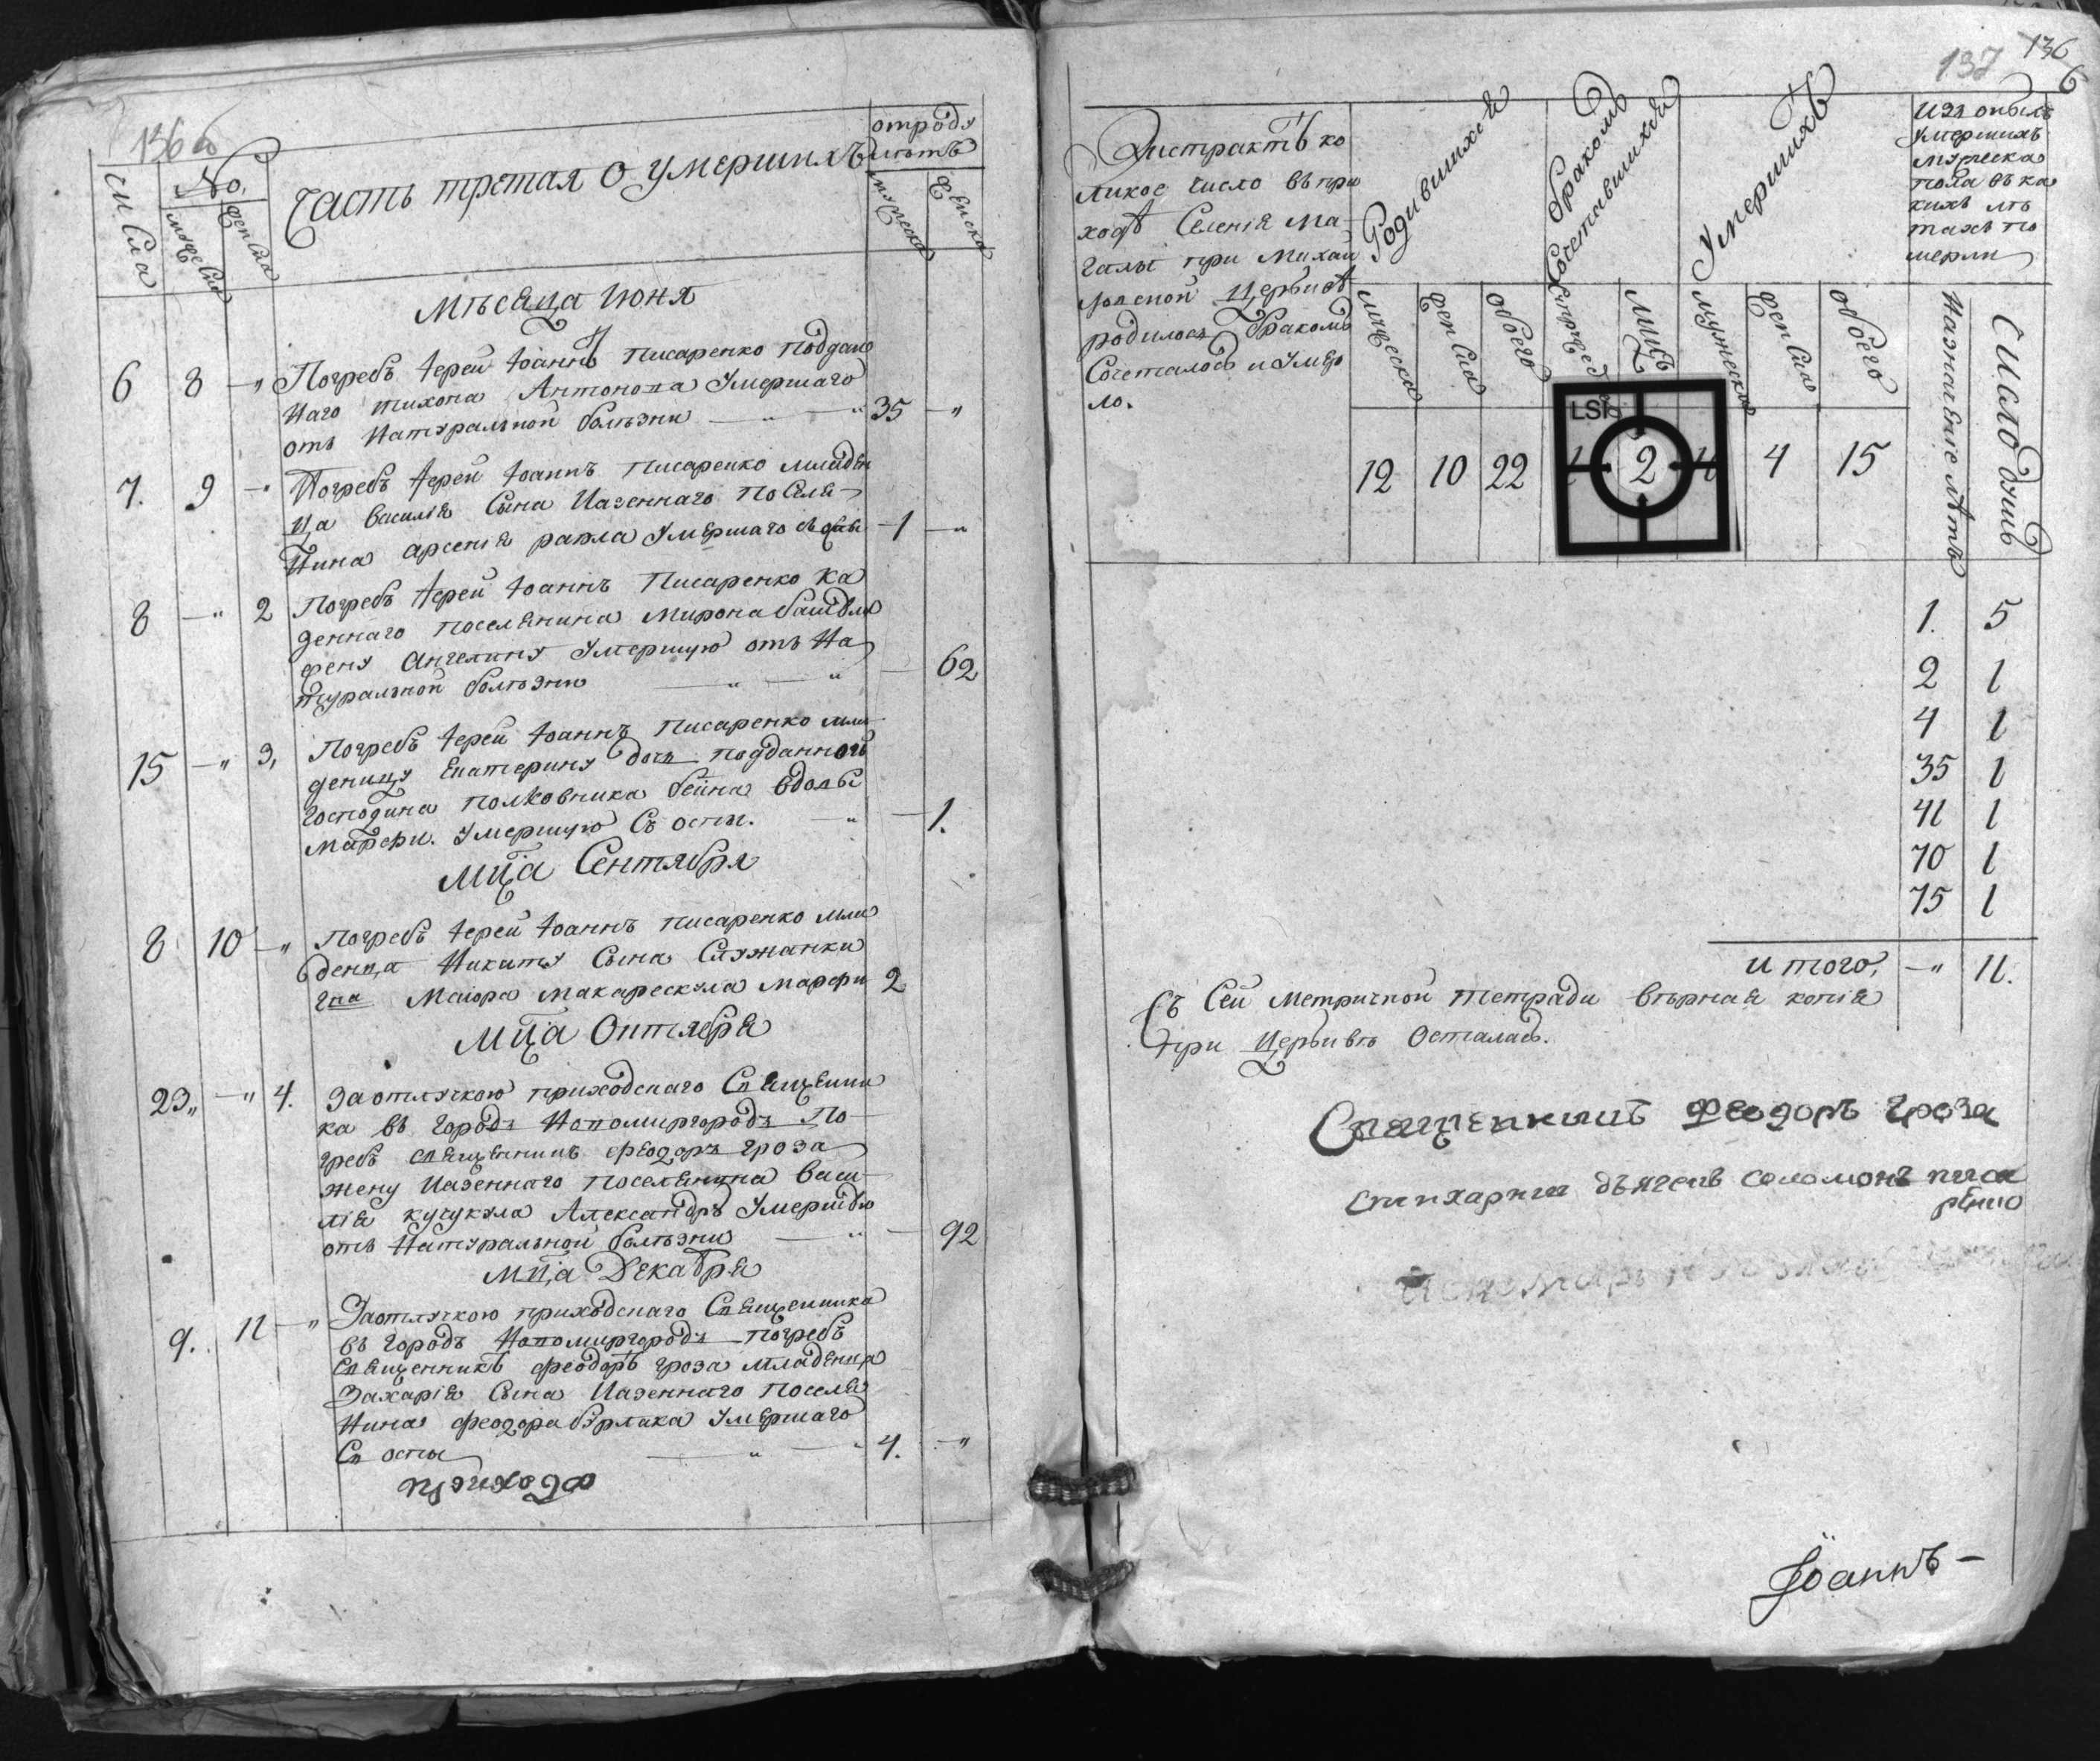 136 об
Числа
No.
мужеска
женска
Часть третая о умершихъ
отроду
лѣтъ
мужеска
женска
Мѣсяца Июня
6 8 — „ Погребъ Іерей Іоаннъ Писаренко поддан
наго Тихона Антонова умершаго
отъ натуральной болѣзни — „ — „ 35 — „
7. 9 — „ Погребъ Іерей Іоаннъ Писаренко младен
ца Василія сына казеннаго поселя-
нина Арсенія рапла умершаго — 1 — „
8 — „ 2 Погребъ Іерей Іоаннъ Писаренко ка
зеннаго поселянина Мирона
жену Ангелину умершую отъ на
туральной болѣзни — „ — „ — 62
15 — „ 3, Погребъ Іерей Іоаннъ Писаренко мла-
деницу Екатерину дочь подданной
Господина полковника бѣина вдовы
Марфи. умершую съ оспы. — „ — 1.
Мца Сентября
8 10 — „ Погребъ Іерей Іоаннъ Писаренко мла
денца Никиту сына служанки
гна Маиора Макарескула Марфи 2
Мца Октября
23„ — „ 4. За отлучкою приходскаго священни
ка въ городъ Новомиргородъ по-
гребъ священникъ Феодоръ Гроза
жену казеннаго поселянина Васи-
лія кучукула Александръ умершую
отъ натуральной болѣзни — „ — 92
Мца Декабря
9. 11 — „ За отлучкою приходскаго священника
въ городъ Новомиргородъ погребъ
священникъ Феодоръ Гроза младенца
Захарія сына казеннаго поселя
нина Феодора бурлака умершаго
съ оспы — „ — „ 4. — „
приходо
137 136
6
Экстрактъ ко
ликое число въ при
ходѣ селенія Ма-
галы при Михаи
ловской церквѣ
родилось бракомъ
сочеталось и умер
ло.
Родившихся
бракомъ
сочетавшихся
Умершихъ
Изъ оныхъ
умершихъ
мужеска
пола въ ка
кихъ лѣ
тахъ по
мерли
мужеска
женска
обоего
лицъ
мужеска
женска
обоего
Назначение лѣтъ
Число душъ
LSI
12 10 22 1 2 11 4 15
1. 5
2 1
4 1
35 1
41 1
70 1
75 1
итого, — „ 11.
Съ сей метричной тетради вѣрная копія
при церквѣ осталась.
Священникъ Феодоръ Гроза
стихарний дьячекъ Соломонъ писа
ренко
Іоаннъ —